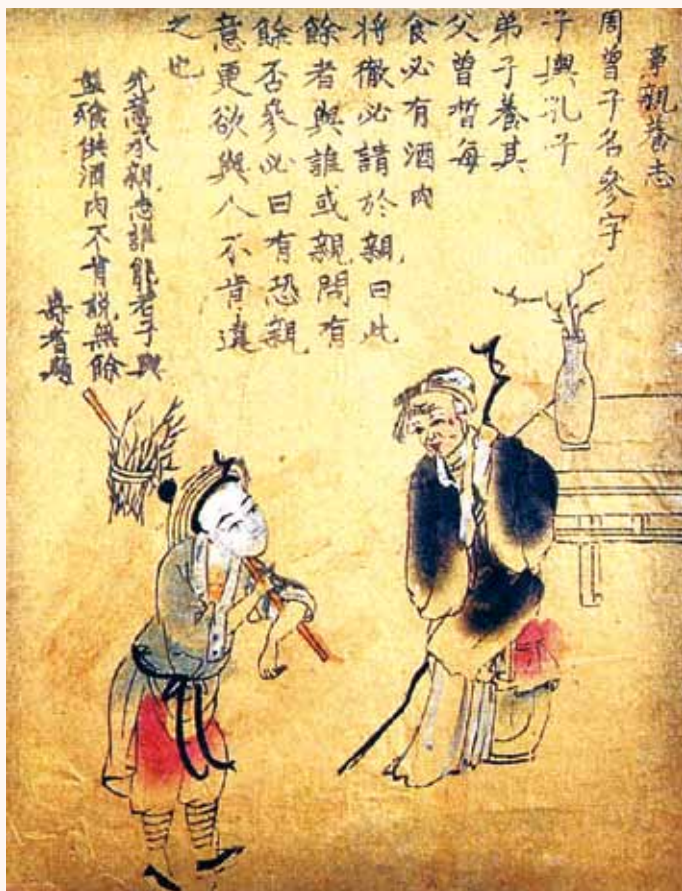 事親養志
周曾子名參字
子輿孔子
弟子養其
父曾晳每
食必有酒肉
將徹必請於親曰此
餘者與誰或親問有
餘否參必曰有恐親
意更欲與人不肯違
之也
先意承親志誰能若子輿
盤飧供酒肉不肯說無餘